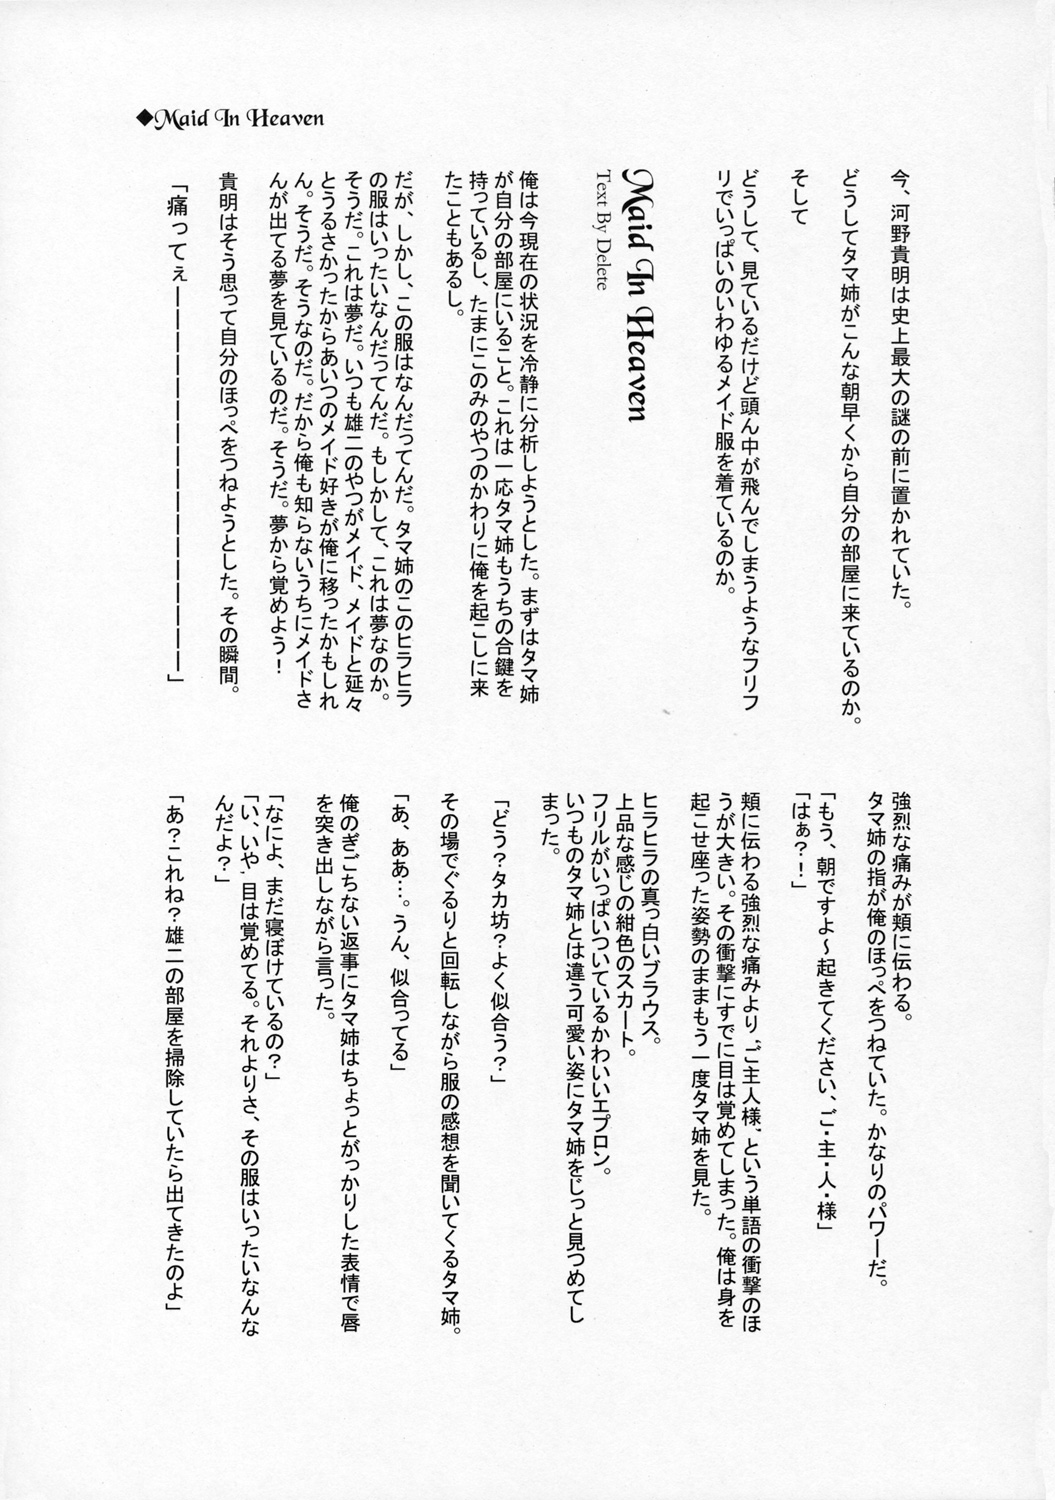 ◆Maid In Heaven
今、河野貴明は史上最大の謎の前に置かれていた。
どうしてタマ姉がこんな朝早くから自分の部屋に来ているのか。
そして
どうして、見ているだけど頭ん中が飛んでしまうようなフリフ
リでいっぱいのいわゆるメイド服を着ているのか。
Maid In Heaven
Text By Delete
俺は今現在の状況を冷静に分析しようとした。まずはタマ姉
が自分の部屋にいること。これは一応タマ姉もうちの合鍵を
持っているし、たまにこのみのやつのかわりに俺を起こしに来
たこともあるし。
だが、しかし、この服はなんだってんだ。タマ姉のこのヒラヒラ
の服はいったいなんだってんだ。もしかして、これは夢なのか。
そうだ。これは夢だ。いつも雄二のやつがメイド、メイドと延々
とうるさかったからあいつのメイド好きが俺に移ったかもしれ
ん。そうだ。そうなのだ。だから俺も知らないうちにメイドさ
んが出てる夢を見ているのだ。そうだ。夢から覚めよう！
貴明はそう思って自分のほっぺをつねようとした。その瞬間。
「痛ってぇーーーーーーーーーーーーーーーーー」
強烈な痛みが頬に伝わる。
タマ姉の指が俺のほっぺをつねていた。かなりのパワーだ。
「もう、朝ですよ～起きてください、ご・主・人・様」
「はぁ？！」
頬に伝わる強烈な痛みより、'ご主人様'という単語の衝撃のほ
うが大きい。その衝撃にすでに目は覚めてしまった。俺は身を
起こせ座った姿勢のままもう一度タマ姉を見た。
ヒラヒラの真っ白いブラウス。
上品な感じの紺色のスカート。
フリルがいっぱいついているかわいいエプロン。
いつものタマ姉とは違う可愛い姿にタマ姉をじっと見つめてし
まった。
「どう？タカ坊？よく似合う？」
その場でぐるりと回転しながら服の感想を聞いてくるタマ姉。
「あ、ああ…。うん、似合ってる」
俺のぎごちない返事にタマ姉はちょっとがっかりした表情で唇
を突き出しながら言った。
「なによ、まだ寝ぼけているの？」
「い、いや、目は覚めてる。それよりさ、その服はいったいなんな
んだよ？」
「あ？これね？雄二の部屋を掃除していたら出てきたのよ」